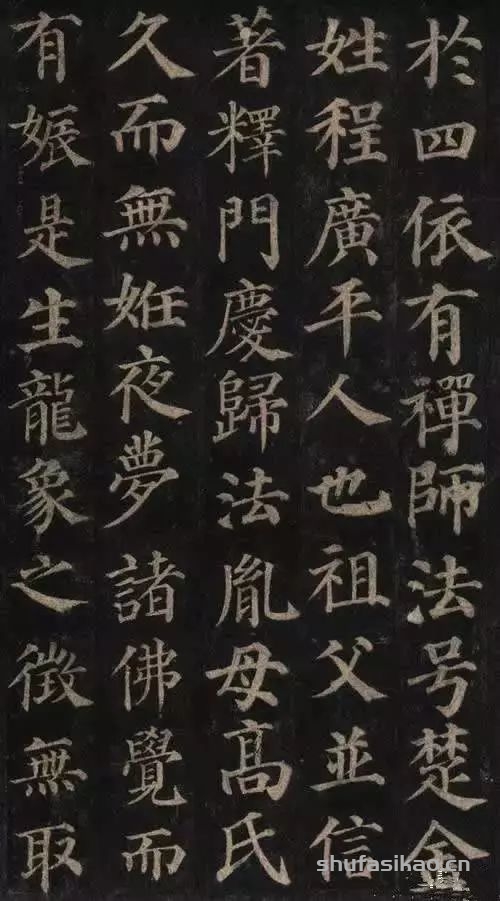 於四依有禪師法号楚金
姓程廣平人也祖父並信
著釋門慶歸法胤母髙氏
久而無姙夜夢諸佛覺而
有娠是生龍象之徵無取
shufasikao.cn